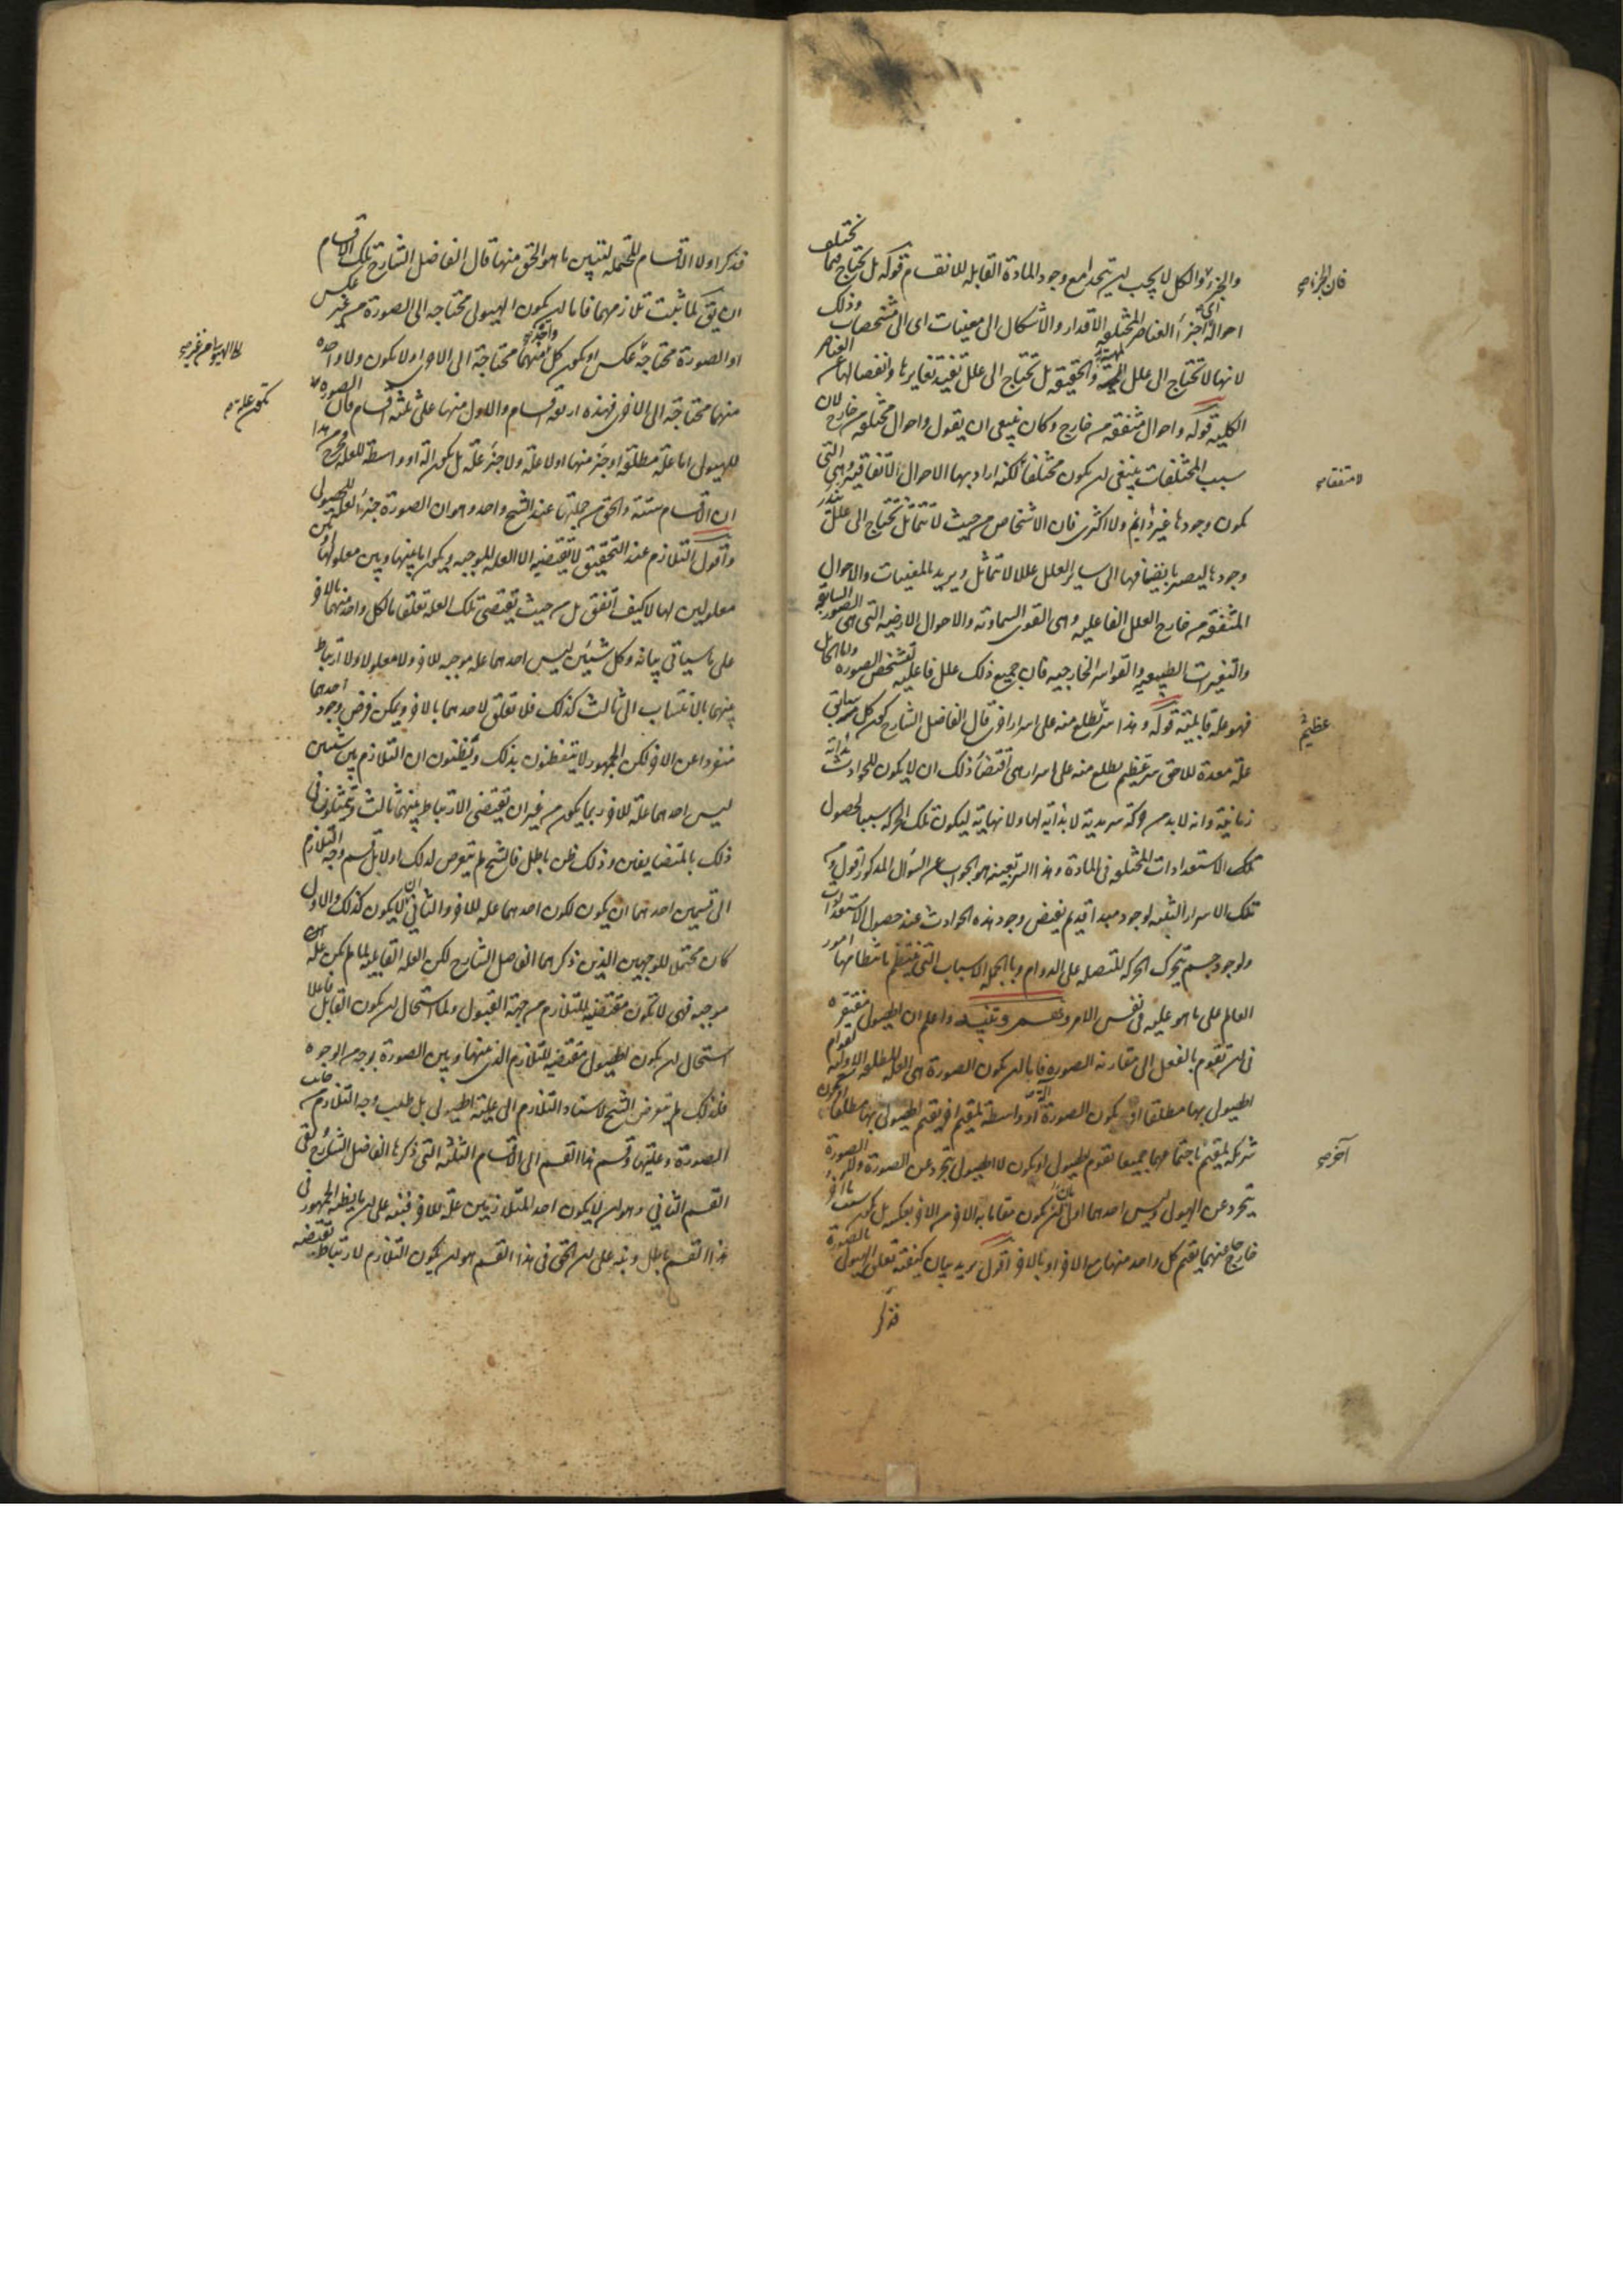 والجزء والكل لا يجب ان يتحدا مع وجود المادة القابله للانقسام قوله بل تحتاج فيما تختلف
فان الجزء صح
احواله اى اجزاء العناصر المختلفه الاقدار والاشكال الى معينات اى الى مشخصات وذلك
لانها لا تحتاج الى علل المهية والحقيقه بل تحتاج الى علل تفيد تغايرها وانفصالها عن العناصر
الكليه قوله واحوال متفقه من خارج وكان ينبغى ان يقول واحوال مختلفه من خارج لان
سبب المختلفات ينبغى ان يكون مختلفا لكنه اراد بها الاحوال الاتفاقيه وهى التى
لا متفقا صح
يكون وجودها غير دائم ولا اكثرى فان الاشخاص من حيث لا تتماثل تحتاج الى علل يندر
وجودها ليصير بانضيافها الى ساير العلل عللا لا تتماثل ويريد بالمعينات والاحوال
المتفقه من خارج العلل الفاعليه وهى القوى السماويه والاحوال الارضيه التى هى الصور السابقه
والتغيرات الطبيعيه والقواسر الخارجيه فان جميع ذلك علل فاعليه لتشخص الصورة واما الحامل
فهو علة قابلية قوله وهذا سر تطلع منه على اسرار اخرى قال الفاضل الشارح كون كل سابق
عظيم
علة معدة للاحق سر عظيم يطلع منه على اسرار هى اقتضاء ذلك ان لا يكون للحوادث بداية
زمانية وانه لا بد من حركة سرمدية لا بداية لها ولا نهاية ليكون تلك الحركه سببا لحصول
تلك الاستعدادات المختلفه فى المادة وهذا السر بعينه هو الجواب عن السؤال المذكور اقول ومن
تلك الاسرار التنبه لوجود مبدا قديم يفيض وجود هذه الحوادث عند حصول الاستعدادات
ولوجود جسم يتحرك الحركه المتصله على الدوام وبالجمله الاسباب التى ينتظم بانتظامها امور
العالم على ما هو عليه فى نفس الامر وهم وتنبيه واعلم ان الهيولى مفتقره
فى ان تقوم بالفعل الى مقارنه الصورة فاما ان يكون الصورة هى العله المطلقه الاولية لقوام
الهيولى بها مطلقا او يكون الصورة آلة او واسطة لمقيم آخر يقيم الهيولى بها مطلقا او يكون
شريكه لمقيم باجتماعهما جميعا تقوم الهيولى او يكون لا الهيولى تتجرد عن الصورة ولا الصورة
آخر صح
تتجرد عن الهيولى وليس احدهما اولى بان يكون مقاما به الاخر من الاخر بعكسه بل يكون سبب ما آخر
خارج عنهما يقيم كل واحد منهما مع الاخر او بالاخر اقول يريد بيان كيفية تعلق الهيولى بالصورة
فذكر
فذكر اولا الاقسام المحتمله لتبيين ما هو الحق منها قال الفاضل الشارح تلك الاقسام
ان يق لما ثبت تلازمهما فاما ان يكون الهيولى محتاجه الى الصورة من غير عكس
او الصورة محتاجة عكس او يكون كل واحدة منهما محتاجة الى الاخرى او لا يكون ولا واحدة
الى الهيولى من غير صح
منهما محتاجة الى الاخرى فهذه اربعه اقسام والاول منها على ثلثه اقسام فان الصورة
تكون علة صح
للهيولى اما علة مطلقه او جزء منها او لا علة ولا جزء علة بل يكون آلة او واسطة للعلة فخرج من هذا
ان الاقسام ستة والحق من جملتها عند الشيخ واحد وهو ان الصورة جزء العله للهيولى
واقول التلازم عند التحقيق لا يقتضيه الا العله الموجبه ويكون اما بينها وبين معلولها او بين
معلولين لها لا كيف اتفق بل من حيث يقتضى تلك العله تعلقا ما لكل واحد منهما بالاخر
على ما سياتى بيانه وكل شيئين ليس احدهما علة موجبه للاخر ولا معلولا ولا ارتباط
بينهما بالانتساب الى ثالث كذلك فلا تعلق لاحدهما بالاخر ويمكن فرض وجود احدهما
منفردا عن الاخر لكن الجمهور لا يتفطنون بذلك ويظنون ان التلازم بين شيئين
ليس احدهما علة للاخر ربما يكون من غير ان يقتضى الارتباط بينهما ثالث ويتمثلون فى
ذلك بالمتضايفين وذلك ظن باطل فالشيخ لم يتعرض لذلك اولا بل قسم وجه التلازم
الى قسمين احدهما ان يكون لكون احدهما علة للاخر والثانى ان لا يكون كذلك والاول
كان محتملا للوجهين الذين ذكرهما الفاضل الشارح لكن العله القابليه لما لم يكن علة
موجبه فهى لا تكون مقتضيه للتلازم من جهة القبول ولما استحال ان يكون القابل فاعلا
استحال ان يكون الهيولى مقتضية للتلازم الذى بينها وبين الصورة بوجه من الوجوه
فلذلك لم يتعرض الشيخ لاستناد التلازم الى علية الهيولى بل طلب وجه التلازم من جانب
الصورة وعليتها وقسم هذا القسم الى الاقسام الثلثه التى ذكرها الفاضل الشارح بقى
القسم الثانى وهو ان لا يكون احد المتلازمين علة للاخر فنبه على ان ما يظنه الجمهور فى
هذا القسم باطل ونبه على ان الحق فى هذا القسم هو ان يكون التلازم لارتباط يقتضيه